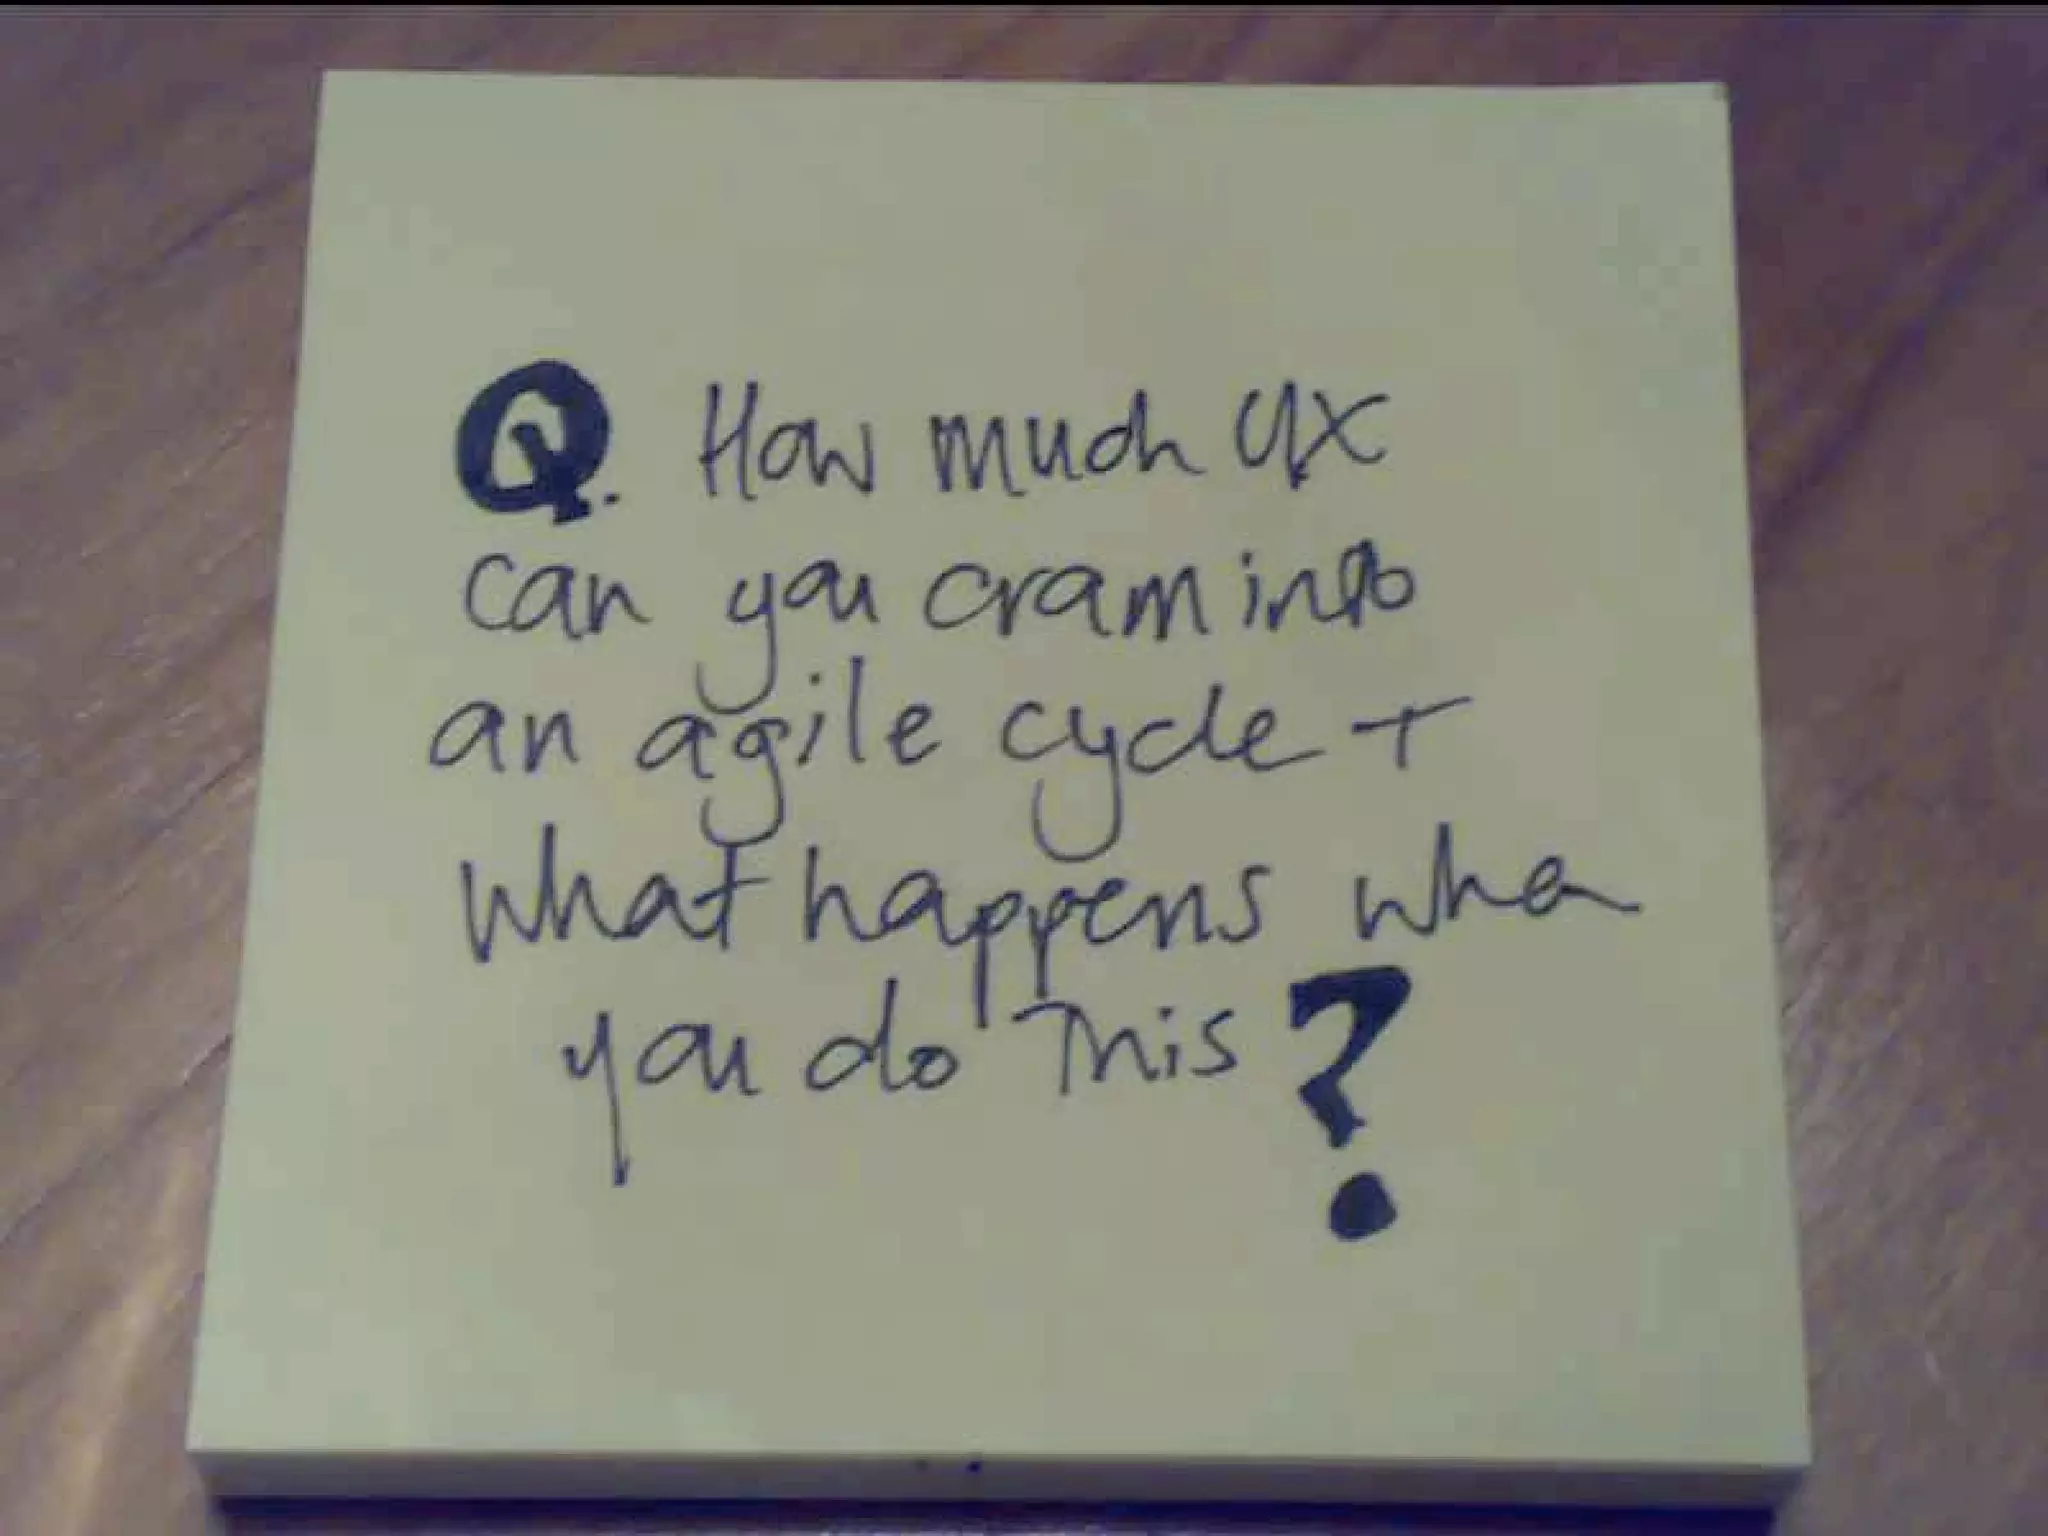 Q. How much UX
can you cram into
an agile cycle +
what happens when
you do this?